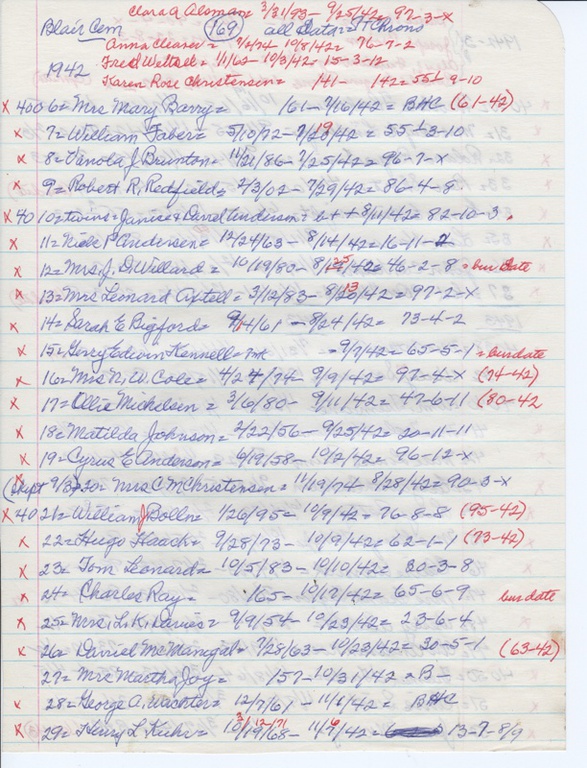 Clara A Aloman = 3/31/93 - 9/25/42 = 97-3-X
Blair Cem (169) all Data = Chrono
Anna Cleaver = 7/2/74 10/8/42 = 76-7-2
1942 Fred Wetzel = 11/62 - 10/3/42 = 15-3-12
Karen Rose Christensen = /41 - /42 = 9-10
X 4006 = Mrs Mary Barry = /61 - 7/16/42 = BHC (61-42)
X 7 = William Faber = 5/10/72 - 7/19/42 = 55-3-10
X 8 = Vanola J. Brunton = 11/21/86 - 7/25/42 = 96-7-X
X 9 = Robert R. Redfield = 2/3/02 - 7/29/42 = 86-4-8
X 40 10 = twins = Janice & David Anderson = b + 8/11/42 = 82-10-3
X 11 = Niels P Andersen = 12/24/63 - 8/14/42 = 16-11-2
X 12 = Mrs J. D Willard = 10/19/80 - 8/25/42 = 46-2-8 = bur date
X 13 = Mrs Leonard Axtell = 3/12/83 - 8/13/42 = 97-2-X
X 14 = Sarah E Bigford = 9/14/61 - 8/24/42 = 73-4-2
X 15 = Gerry Edwin Kennell = mk - 9/7/42 = 65-5-1 = bur date
X 16 = Mrs N. W. Cole = 4/24/74 - 9/9/42 = 97-4-X (74-42)
X 17 = Ollie Michelsen = 3/6/80 - 9/11/42 = 47-6-11 (80-42
X 18 = Matilda Johnson = 2/22/56 - 9/25/42 = 20-11-11
X 19 = Cyrus E Anderson = 6/19/58 - 10/2/42 = 96-12-X
(skipt 9/3) 20 = Mrs C M Christensen = 11/19/74 8/28/42 = 90-3-X
X 40 21 = William J Bolln = 1/26/95 = 10/9/42 = 76-8-8 (95-42)
X 22 = Hugo Haack = 9/28/73 - 10/9/42 = 62-1-1 (73-42)
X 23 = Tom Leonard = 10/5/83 - 10/10/42 = 20-3-8
X 24 = Charles Ray = /65 - 10/17/42 = 65-6-9 bur date
X 25 = Mrs. L. K. Davies = 9/9/54 - 10/23/42 = 23-6-4
X 26 = Daniel McManigal = 7/28/63 - 10/23/42 = 30-5-1 (63-42)
27 = Mrs Martha Joy = /57 - 10/31/42 = B-
X 28 = George A. Wachter = 12/7/61 - 11/1/42 = BHC
X 29 = Henry L Kuhr = 10/19/68 - 11/7/42 = 13-7-8/9